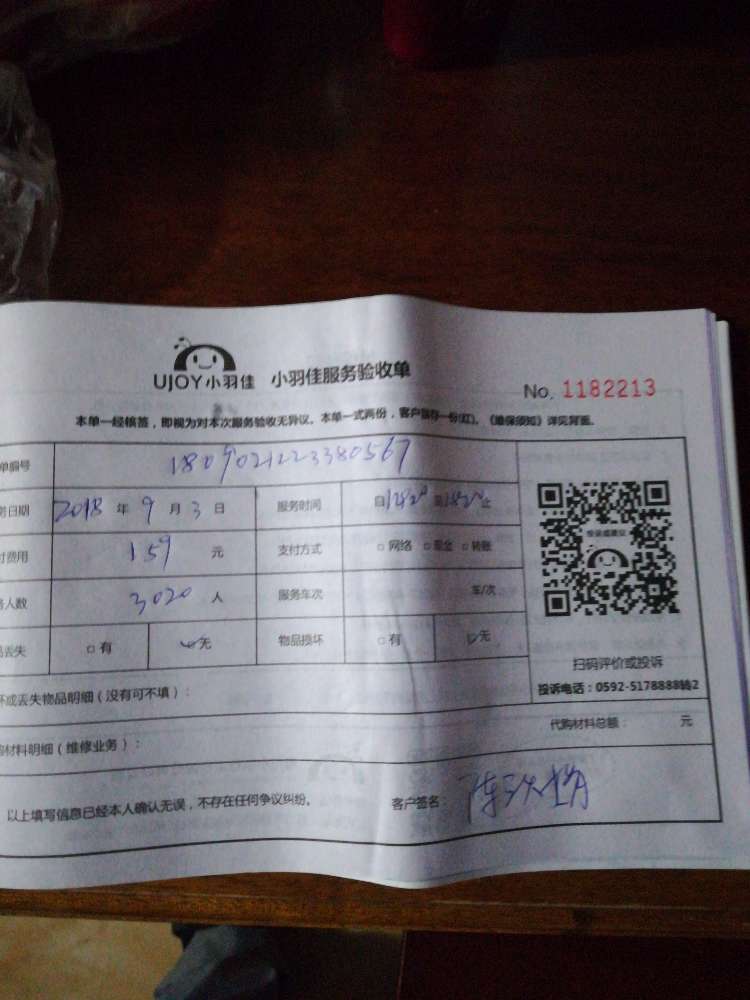 UJOY小羽佳 小羽佳服务验收单
No. 1182213
本单一经核签，即视为对本次服务验收无异议。本单一式两份，客户留存一份(红)。《维保须知》详见背面。
单编号 1809021223380567
务日期 2018 年 9 月 3 日 服务时间 自 至 止
付费用 159 元 支付方式 □网络 □现金 □转账
务人数 3020 人 服务车次 车/次
品丢失 □有 无 物品损坏 □有 无
投诉或建议
扫码评价或投诉
投诉电话：0592-5178888转2
坏或丢失物品明细（没有可不填）：
代购材料总额： 元
购材料明细（维修业务）：
以上填写信息已经本人确认无误，不存在任何争议纠纷。 客户签名：